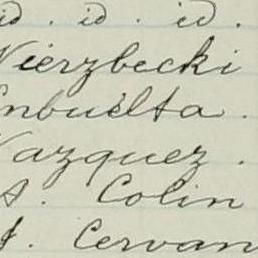 id . id . id .
Wierzbecki
Enbuélta .
Vazquez .
A. Colin
J. Cervan